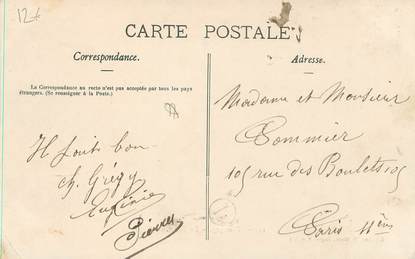 12€
CARTE POSTALE
Correspondance.
Adresse.
La Correspondance au recto n'est pas acceptée par tous les pays
étrangers. (Se renseigner à la Poste.)
Madame et Monsieur
Pommier
105 rue des Boulets 105
Paris 11ème
bon
Eugénie
Pierre